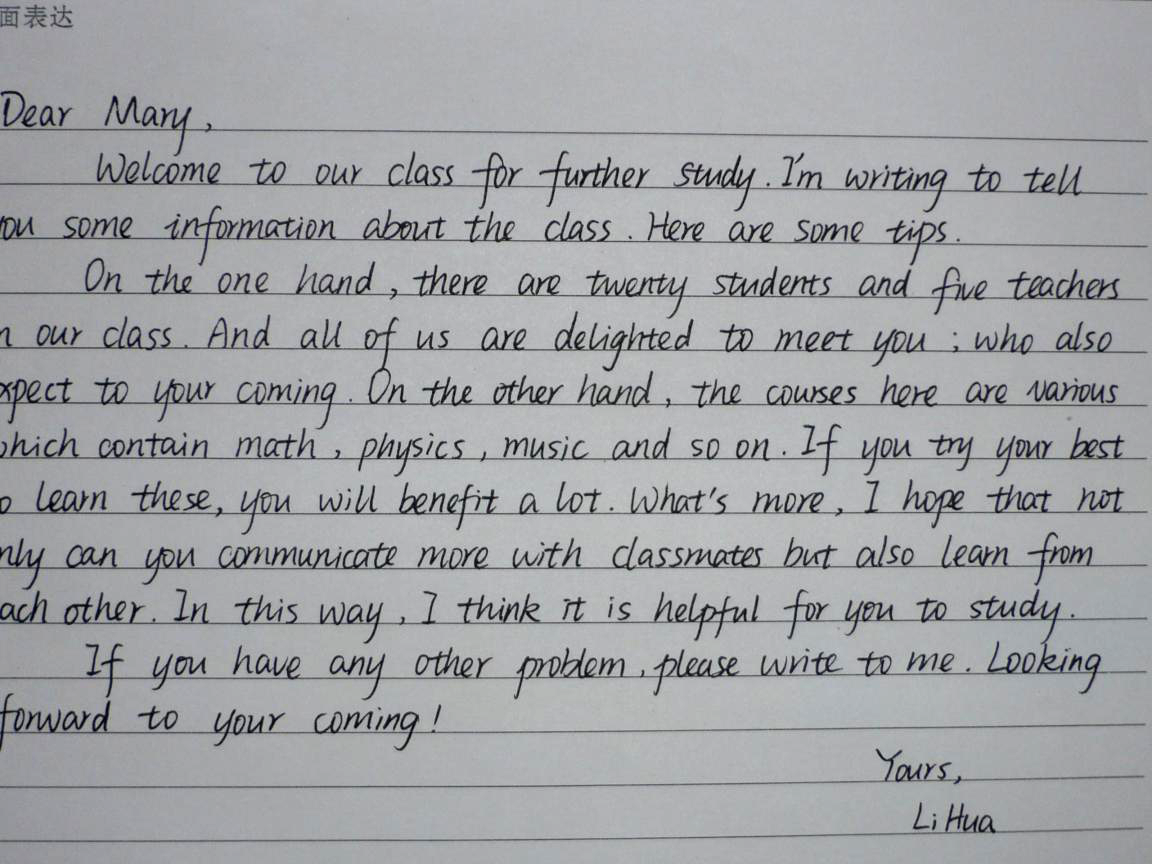 面表达
Dear Mary,
Welcome to our class for further study. I'm writing to tell
ou some information about the class. Here are some tips.
On the one hand, there are twenty students and five teachers
n our class. And all of us are delighted to meet you ; who also
xpect to your coming. On the other hand, the courses here are various
hich contain math, physics, music and so on. If you try your best
o learn these, you will benefit a lot. What's more, I hope that not
nly can you communicate more with classmates but also learn from
ach other. In this way, I think it is helpful for you to study.
If you have any other problem, please write to me. Looking
forward to your coming!
Yours,
Li Hua